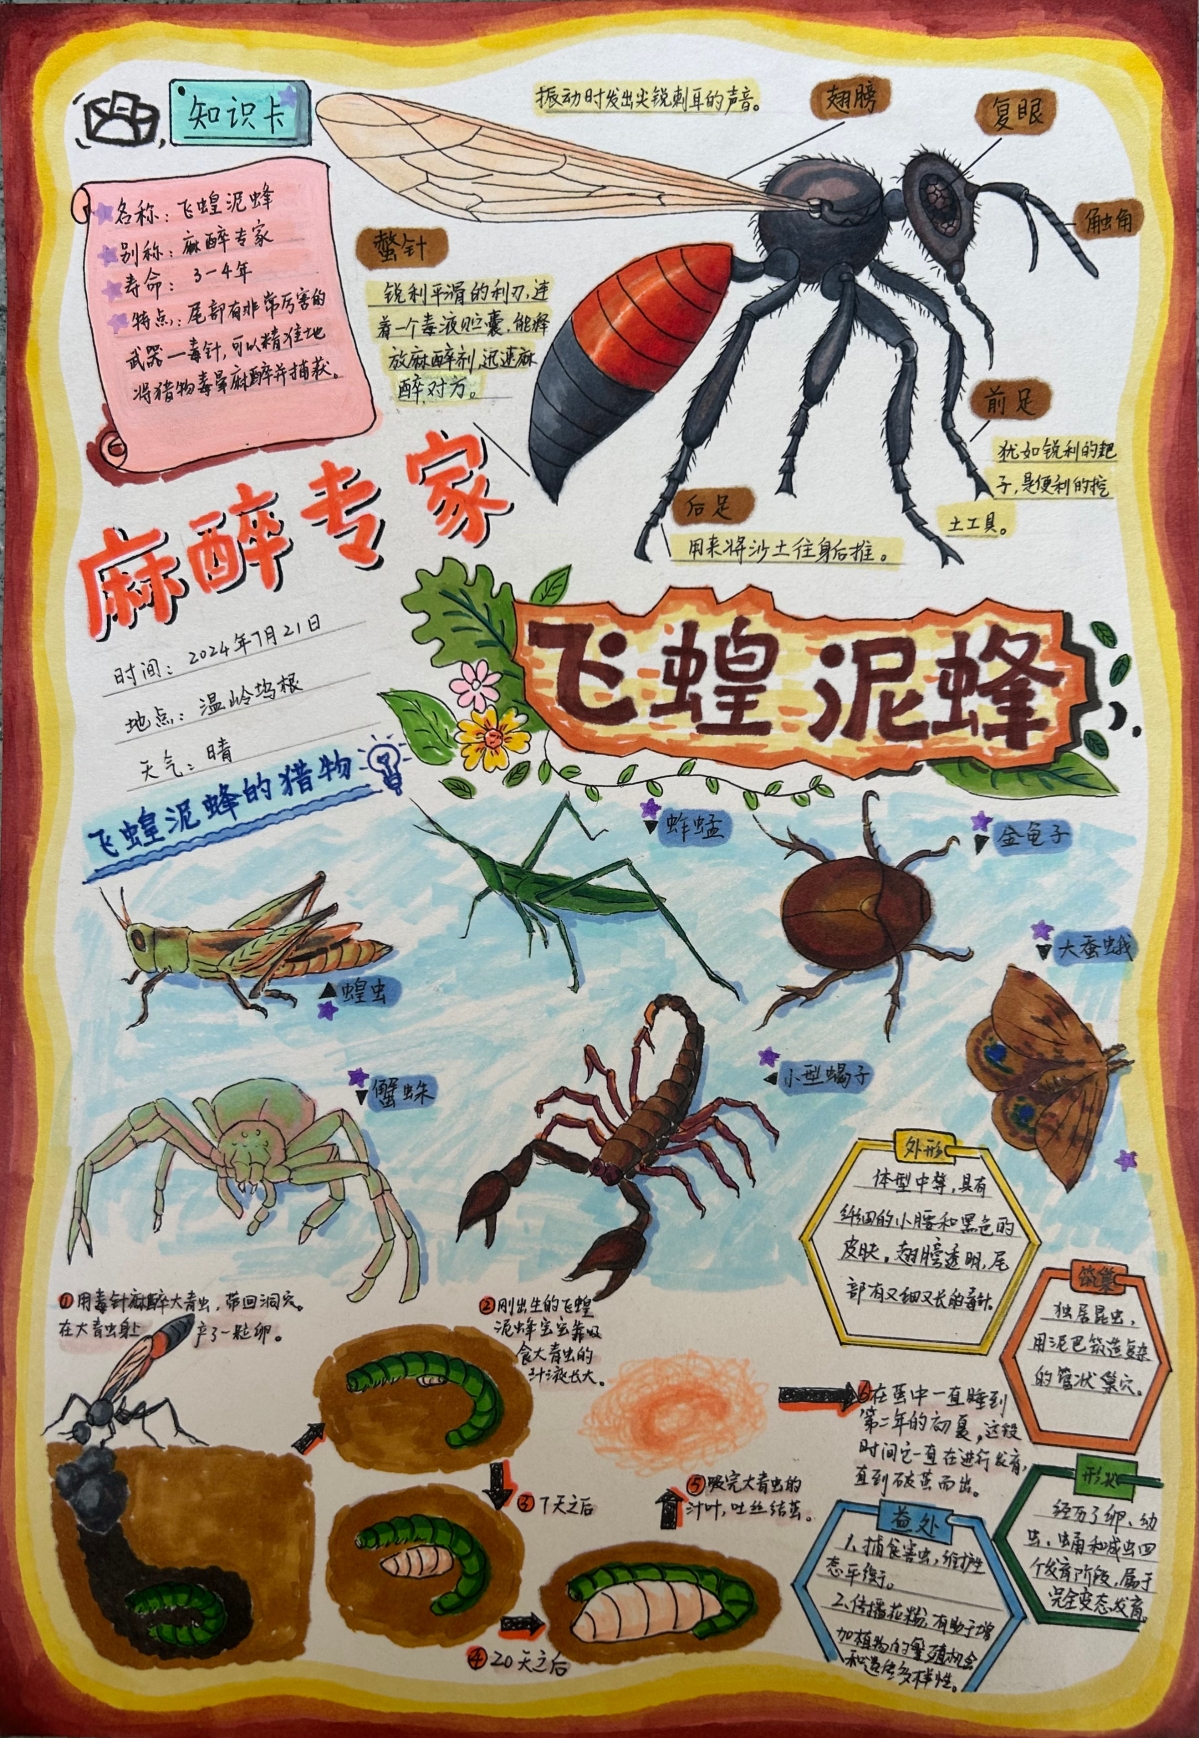 知识卡
名称：飞蝗泥蜂
别称：麻醉专家
寿命：3-4年
特点：尾部有非常厉害的
武器一毒针，可以精准地
将猎物毒晕麻醉并捕获。
振动时发出尖锐刺耳的声音。
翅膀
复眼
触角
螫针
锐利平滑的利刃，连
着一个毒液贮囊，能释
放麻醉剂，迅速麻
醉对方。
前足
犹如锐利的耙
子，是便利的挖
土工具。
后足
用来将沙土往身后推。
麻醉专家
时间：2024年7月21日
地点：温岭坞根
天气：晴
飞蝗泥蜂
飞蝗泥蜂的猎物
蚱蜢
金龟子
大蚕蛾
蝗虫
蟹蛛
小型蝎子
外形
体型中等，具有
纤细的小腰和黑色的
皮肤。翅膀透明，尾
部有又细又长的毒针。
筑巢
独居昆虫，
用泥巴筑造复杂
的管状巢穴。
①用毒针麻醉大青虫，带回洞穴。
在大青虫身上产了一粒卵。
②刚出生的飞蝗
泥蜂宝宝靠吸
食大青虫的
汁液长大。
③7天之后
④20天之后
⑤吸完大青虫的
汁叶，吐丝结茧。
⑥在茧中一直睡到
第二年的初夏，这段
时间它一直在进行发育，
直到破茧而出。
益处
1、捕食害虫，维护生
态平衡。
2、传播花粉，有助于增
加植物的繁殖机会
和遗传多样性。
形状
经历了卵、幼
虫、蛹和成虫四
个发育阶段，属于
完全变态发育。